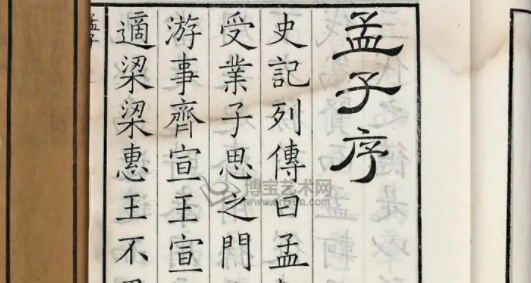 孟子序
史記列傳曰孟
受業子思之門
游事齊宣王宣
適梁梁惠王不
博宝艺术网
artxun.com